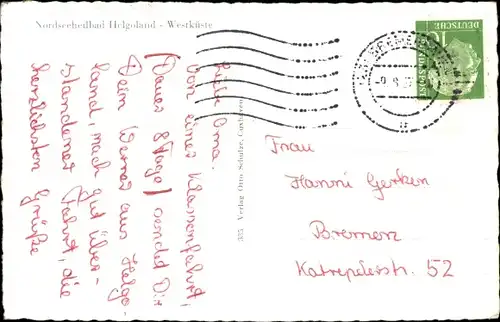 Nordseeheilbad Helgoland - Westküste
Liebe Oma.
Von einer Klassenfahrt,
(Dauer 8 Tage) sendet Dir
Dein Werner aus Helgo-
land, nach gut über-
standener Fahrt, die
herzlichsten Grüße
335 Verlag Otto Schulze, Cuxhaven
DEUTSCHE
10
Frau
Hanni Gerken
Bremen
Katrepelerstr. 52